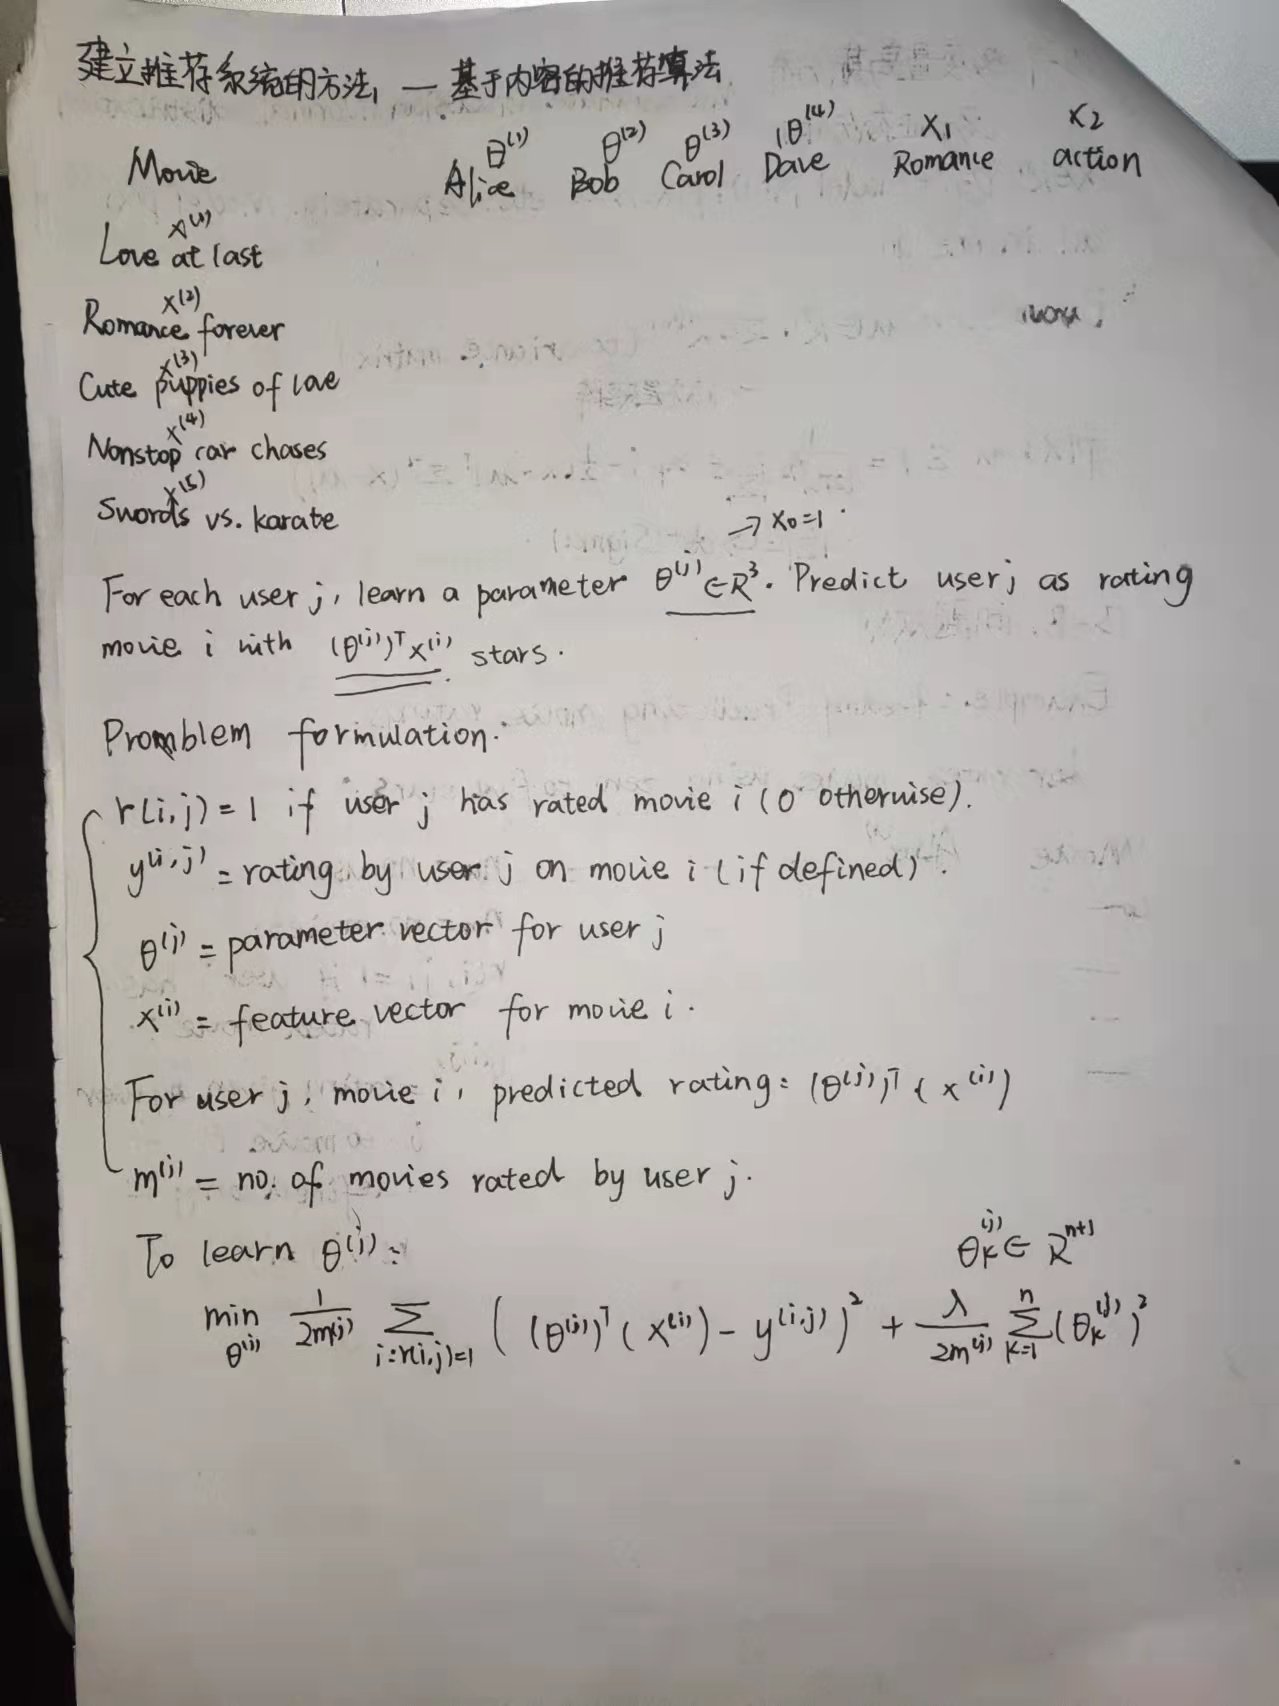 建立推荐系统的方法, — 基于内容的推荐算法
θ⁽¹⁾ θ⁽²⁾ θ⁽³⁾ θ⁽⁴⁾ X₁ X₂
Movie Alice Bob Carol Dave Romance action
x⁽¹⁾
Love at last
x⁽²⁾
Romance forever
x⁽³⁾
Cute puppies of love
x⁽⁴⁾
Nonstop car chases
x⁽⁵⁾
Swords vs. karate
→ x₀=1
For each user j, learn a parameter θ⁽ʲ⁾∈R³. Predict user j as rating
movie i with (θ⁽ʲ⁾)ᵀx⁽ⁱ⁾ stars.
Promblem formulation.
r(i,j)=1 if user j has rated movie i (0 otherwise).
y⁽ⁱ,ʲ⁾ = rating by user j on movie i (if defined).
θ⁽ʲ⁾ = parameter vector for user j
x⁽ⁱ⁾ = feature vector for movie i.
For user j, movie i, predicted rating: (θ⁽ʲ⁾)ᵀ(x⁽ⁱ⁾)
m⁽ʲ⁾ = no. of movies rated by user j.
To learn θ⁽ʲ⁾: θₖ⁽ʲ⁾∈ Rⁿ⁺¹
min θ⁽ʲ⁾ 1/2m⁽ʲ⁾ Σ i:r(i,j)=1 ((θ⁽ʲ⁾)ᵀ(x⁽ⁱ⁾) - y⁽ⁱ,ʲ⁾)² + λ/2m⁽ʲ⁾ Σ k=1 n (θₖ⁽ʲ⁾)²